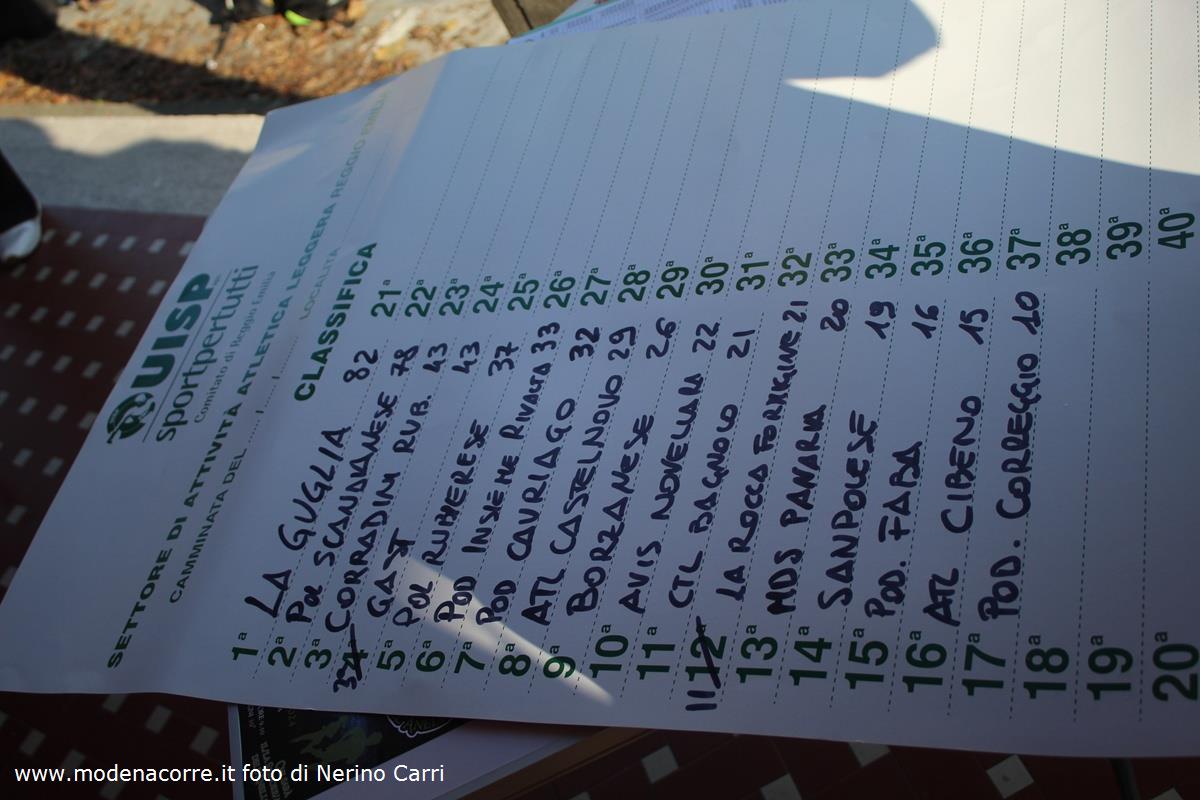 UISP
sportpertutti
Comitato di Reggio Emilia
SETTORE DI ATTIVITÀ ATLETICA LEGGERA REGGIO EMILIA
CAMMINATA DEL ....../....../...... LOCALITÀ
CLASSIFICA
1ª LA GUGLIA 82
2ª POL SCANDIANESE 78
3ª CORRADINI RUB. 43
3 4ª GAST 43
5ª POL RUBIERESE 37
6ª POD INSIEME RIVALTA 33
7ª POD CAVRIAGO 32
8ª ATL CASTELNOVO 29
9ª BORZANESE 26
10ª AVIS NOVELLARA 22
11ª CTL BAGNOLO 21
11 12ª LA ROCCA FORMIGINE 21
13ª MDS PANARIA 20
14ª SANPOLESE 19
15ª POD. FABA 16
16ª ATL CIBENO 15
17ª POD. CORREGGIO 10
18ª
19ª
20ª
21ª
22ª
23ª
24ª
25ª
26ª
27ª
28ª
29ª
30ª
31ª
32ª
33ª
34ª
35ª
36ª
37ª
38ª
39ª
40ª
www.modenacorre.it foto di Nerino Carri